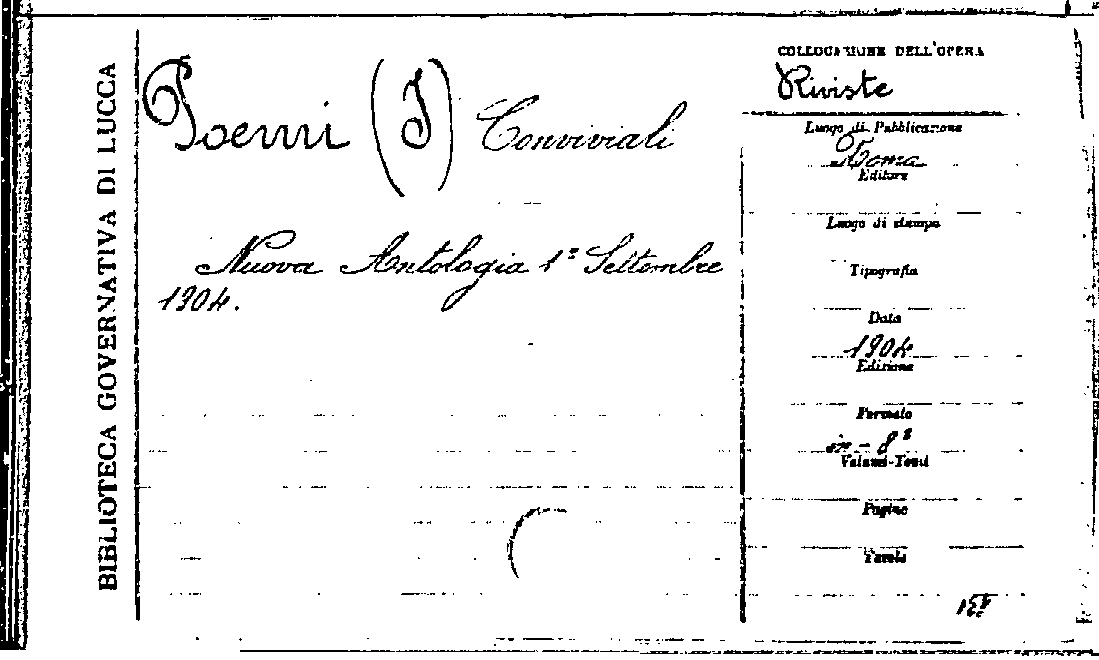 BIBLIOTECA GOVERNATIVA DI LUCCA
Poemi (I) Conviviali
Nuova Antologia 1° Settembre
1904.
COLLOCAZIONE DELL'OPERA
Riviste
Luogo di Pubblicazione
Roma
Editore
Luogo di stampa
Tipografia
Data
1904
Edizione
Formato
in-8°
Volumi-Tomi
Pagine
Tavole